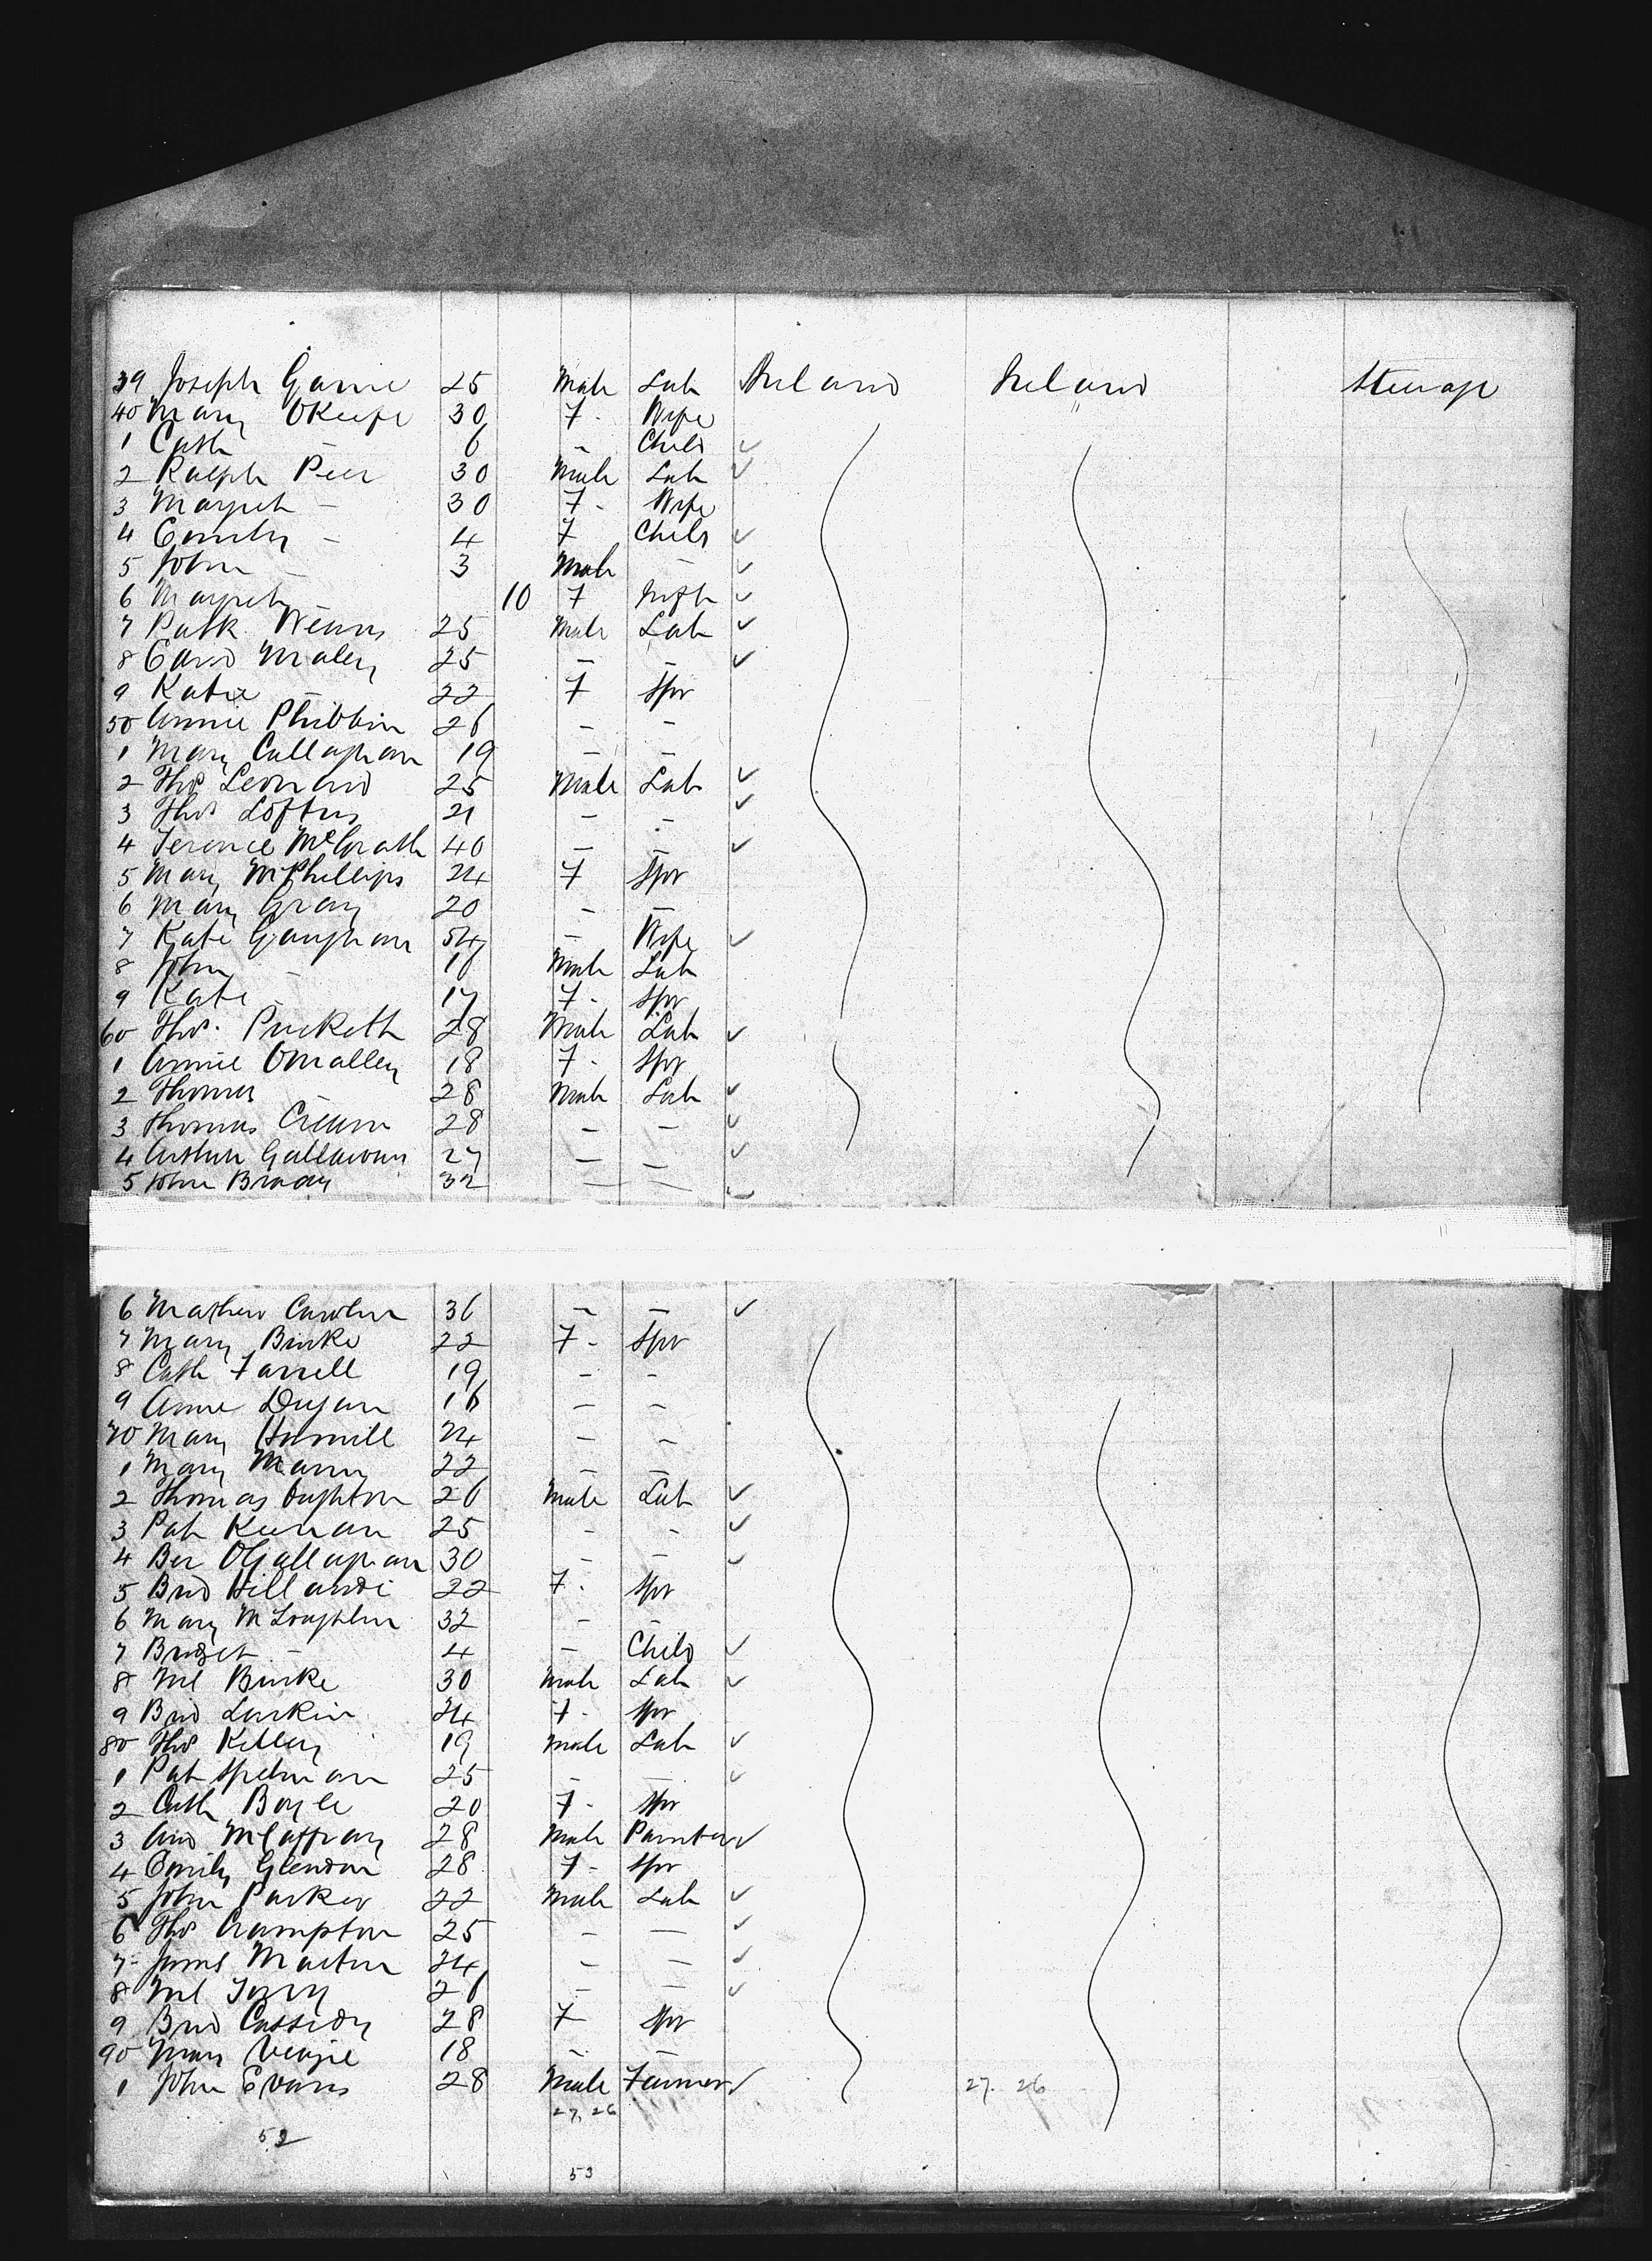 39 Joseph Garvie 25 Male Lab Ireland Ireland Steerage
40 Mary OKeefe 30 F- Wife
1 Cath — 6 — Child ✓
2 Ralph Peer 30 Male Lab ✓
3 Margret — 30 F- Wife
4 Emily — 4 F Child ✓
5 John — 3 Male — ✓
6 Margret — 10 F Infth ✓
7 Patk 25 Male Lab ✓
8 Edwd Maley 25 — — ✓
9 Katie — 22 F Spr
50 Annie Phibbin 26 — —
1 Mary Callaghan 19 — —
2 Thos Leonard 25 Male Lab ✓
3 Thos Loftus 21 — — ✓
4 Terence McGrath 40 — — ✓
5 Mary McPhillips 24 F Spr
6 Mary Gray 20 — —
7 Kate Gaughan 54 — Wife ✓
8 John — 18 Male Lab
9 Kate — 17 F- Spr
60 Thos. Puckett 28 Male Lab ✓
1 Annie OMalley 18 F- Spr
2 Thomas 28 Male Lab ✓
3 Thomas 28 — — ✓
4 Arthur 27 — — ✓
5 John Brady 32 — — ✓
6 Mathew 36 — — ✓
7 Mary Burke 22 F- Spr
8 Cath Farrell 19 — —
9 Anne Dugan 16 — —
70 Mary 24 — —
1 Mary 22 — —
2 Thomas Oughton 26 Male Lab ✓
3 Pat Keenan 25 — — ✓
4 Ber OGallaghan 30 — — ✓
5 Brid 22 F- Spr
6 Mary McLoughlin 32 — —
7 Bridget — 4 — Child ✓
8 Ml Burke 30 Male Lab ✓
9 Brid Larkin 24 F- Spr
80 Thos Kelley 19 Male Lab ✓
1 Pat Spelman 25 — — ✓
2 Cath Boyle 20 F- Spr
3 And McCaffray 28 Male Painter ✓
4 Emily Glendon 28 F- Spr
5 John Parker 22 Male Lab ✓
6 Thos Crampton 25 — — ✓
7 James Martin 24 — — ✓
8 Ml 26 — — ✓
9 Brid Cassidy 28 F Spr
90 Mary 18 — —
1 John Evans 28 Male Farmer ✓ 27. 26
27, 26
52
53